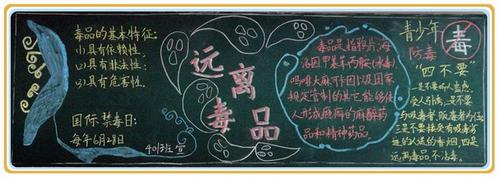 毒品的基本特征:
(1)具有依赖性。
(2)具有非法性:
(3)具有危害性。
国际禁毒日:
每年6月28日
401班宣
远离毒品
毒品是指鸦片、海
洛因、甲基苯丙胺(冰毒)、
吗啡、大麻、可卡因以及国家
规定管制的其它能够使
人形成瘾癖的麻醉药
品和精神药品
青少年
防毒
毒
"四不要"
一是不要听人
受人引诱;二是不要
与吸毒者、贩毒者为伍
三是不要接受有吸毒
的人送的香烟;四是
远离毒品,不沾毒。